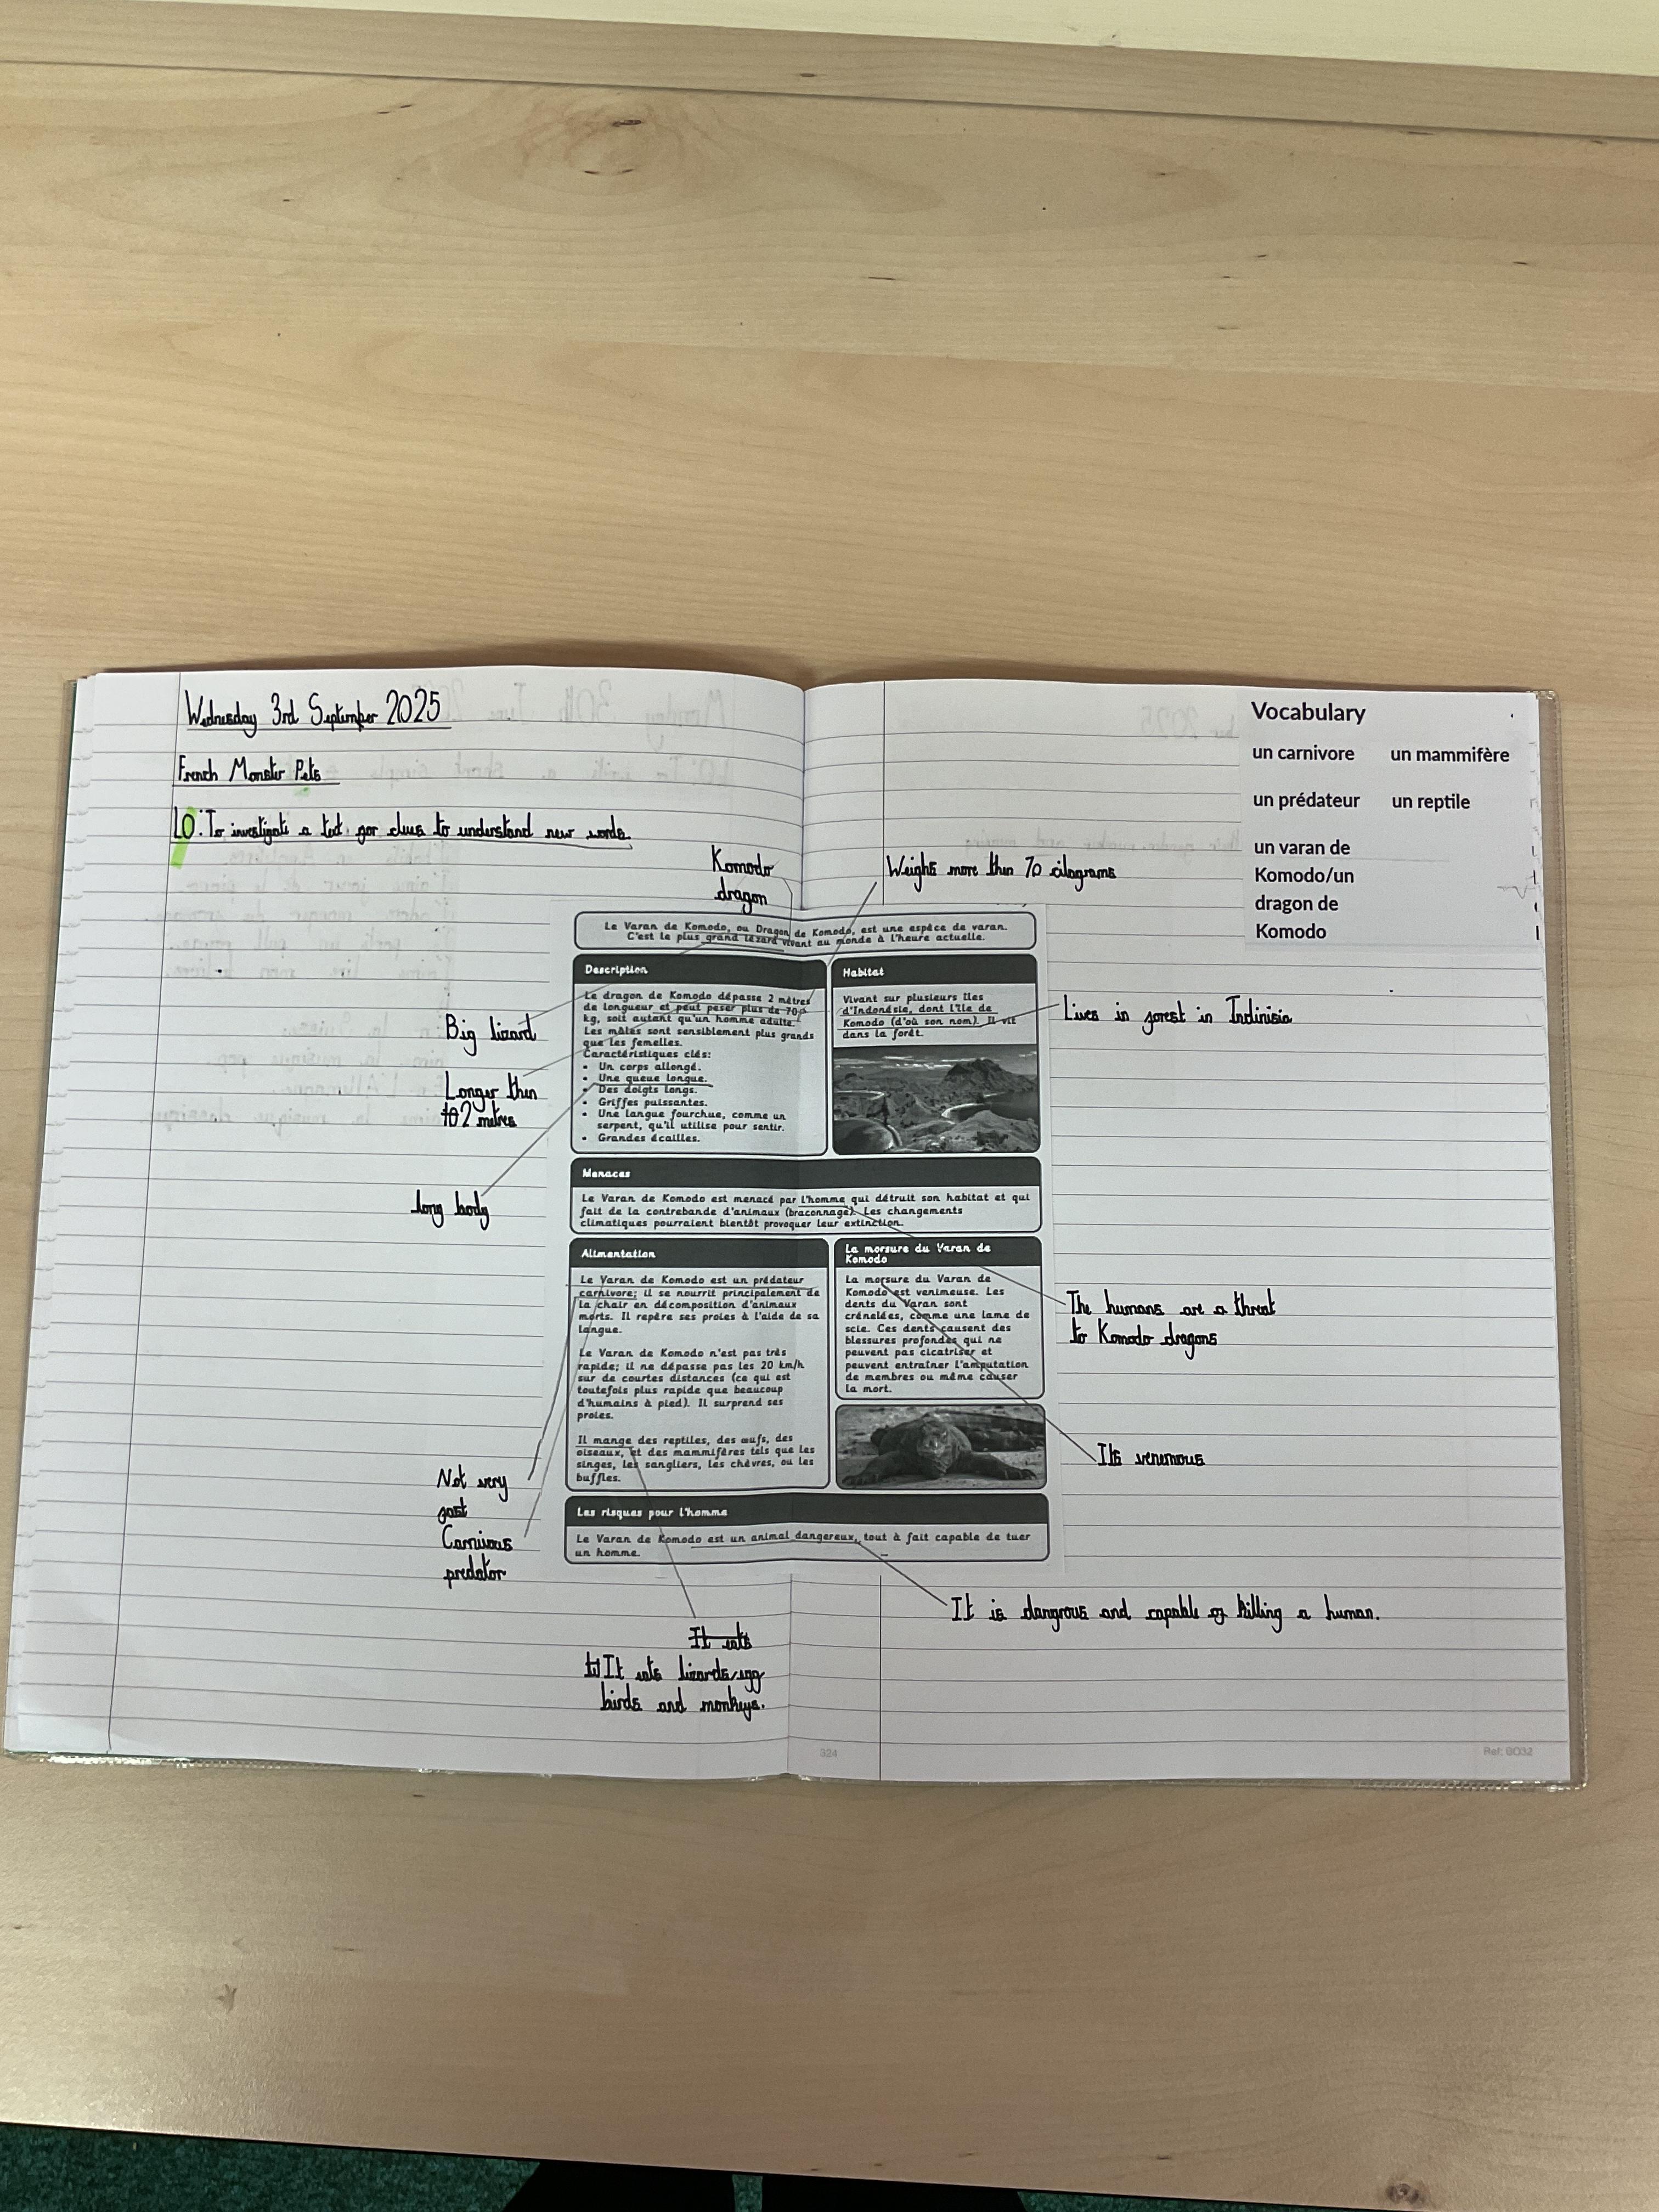 Wednesday 3rd September 2025
French Monster Pets
LO: To investigate a text for clues to understand new words.
Vocabulary
un carnivore un mammifère
un prédateur un reptile
un varan de
Komodo/un
dragon de
Komodo
Komodo
dragon
Weighs more then 70 cilograms
Le Varan de Komodo, ou Dragon de Komodo, est une espèce de varan.
C'est le plus grand lézard vivant au monde à l'heure actuelle.
Description
Le dragon de Komodo dépasse 2 mètres
de longueur et peut peser plus de 70
kg, soit autant qu'un homme adulte.
Les mâles sont sensiblement plus grands
que les femelles.
Caractéristiques clés:
• Un corps allongé.
• Une queue longue.
• Des doigts longs.
• Griffes puissantes.
• Une langue fourchue, comme un
serpent, qu'il utilise pour sentir.
• Grandes écailles.
Habitat
Vivant sur plusieurs îles
d'Indonésie, dont l'île de
Komodo (d'où son nom). Il vit
dans la forêt.
Big lizard
Longer then
to 2 metres
long body
Lives in forest in Indinisia
Menaces
Le Varan de Komodo est menacé par l'homme qui détruit son habitat et qui
fait de la contrebande d'animaux (braconnage). Les changements
climatiques pourraient bientôt provoquer leur extinction.
Alimentation
Le Varan de Komodo est un prédateur
carnivore; il se nourrit principalement de
la chair en décomposition d'animaux
morts. Il repère ses proies à l'aide de sa
langue.
Le Varan de Komodo n'est pas très
rapide; il ne dépasse pas les 20 km/h
sur de courtes distances (ce qui est
toutefois plus rapide que beaucoup
d'humains à pied). Il surprend ses
proies.
Il mange des reptiles, des œufs, des
oiseaux, et des mammifères tels que les
singes, les sangliers, les chèvres, ou les
buffles.
La morsure du Varan de
Komodo
La morsure du Varan de
Komodo est venimeuse. Les
dents du Varan sont
crénelées, comme une lame de
scie. Ces dents causent des
blessures profondes qui ne
peuvent pas cicatriser et
peuvent entraîner l'amputation
de membres ou même causer
la mort.
The humans are a threat
to Komodo dragons
Its venemous
Not very
fast
Carnivous
predator
Les risques pour l'homme
Le Varan de Komodo est un animal dangereux, tout à fait capable de tuer
un homme.
It is dangrous and capable of killing a human.
It eats
It eats lizards, egg
birds and monkeys.
324
Ref: 6032